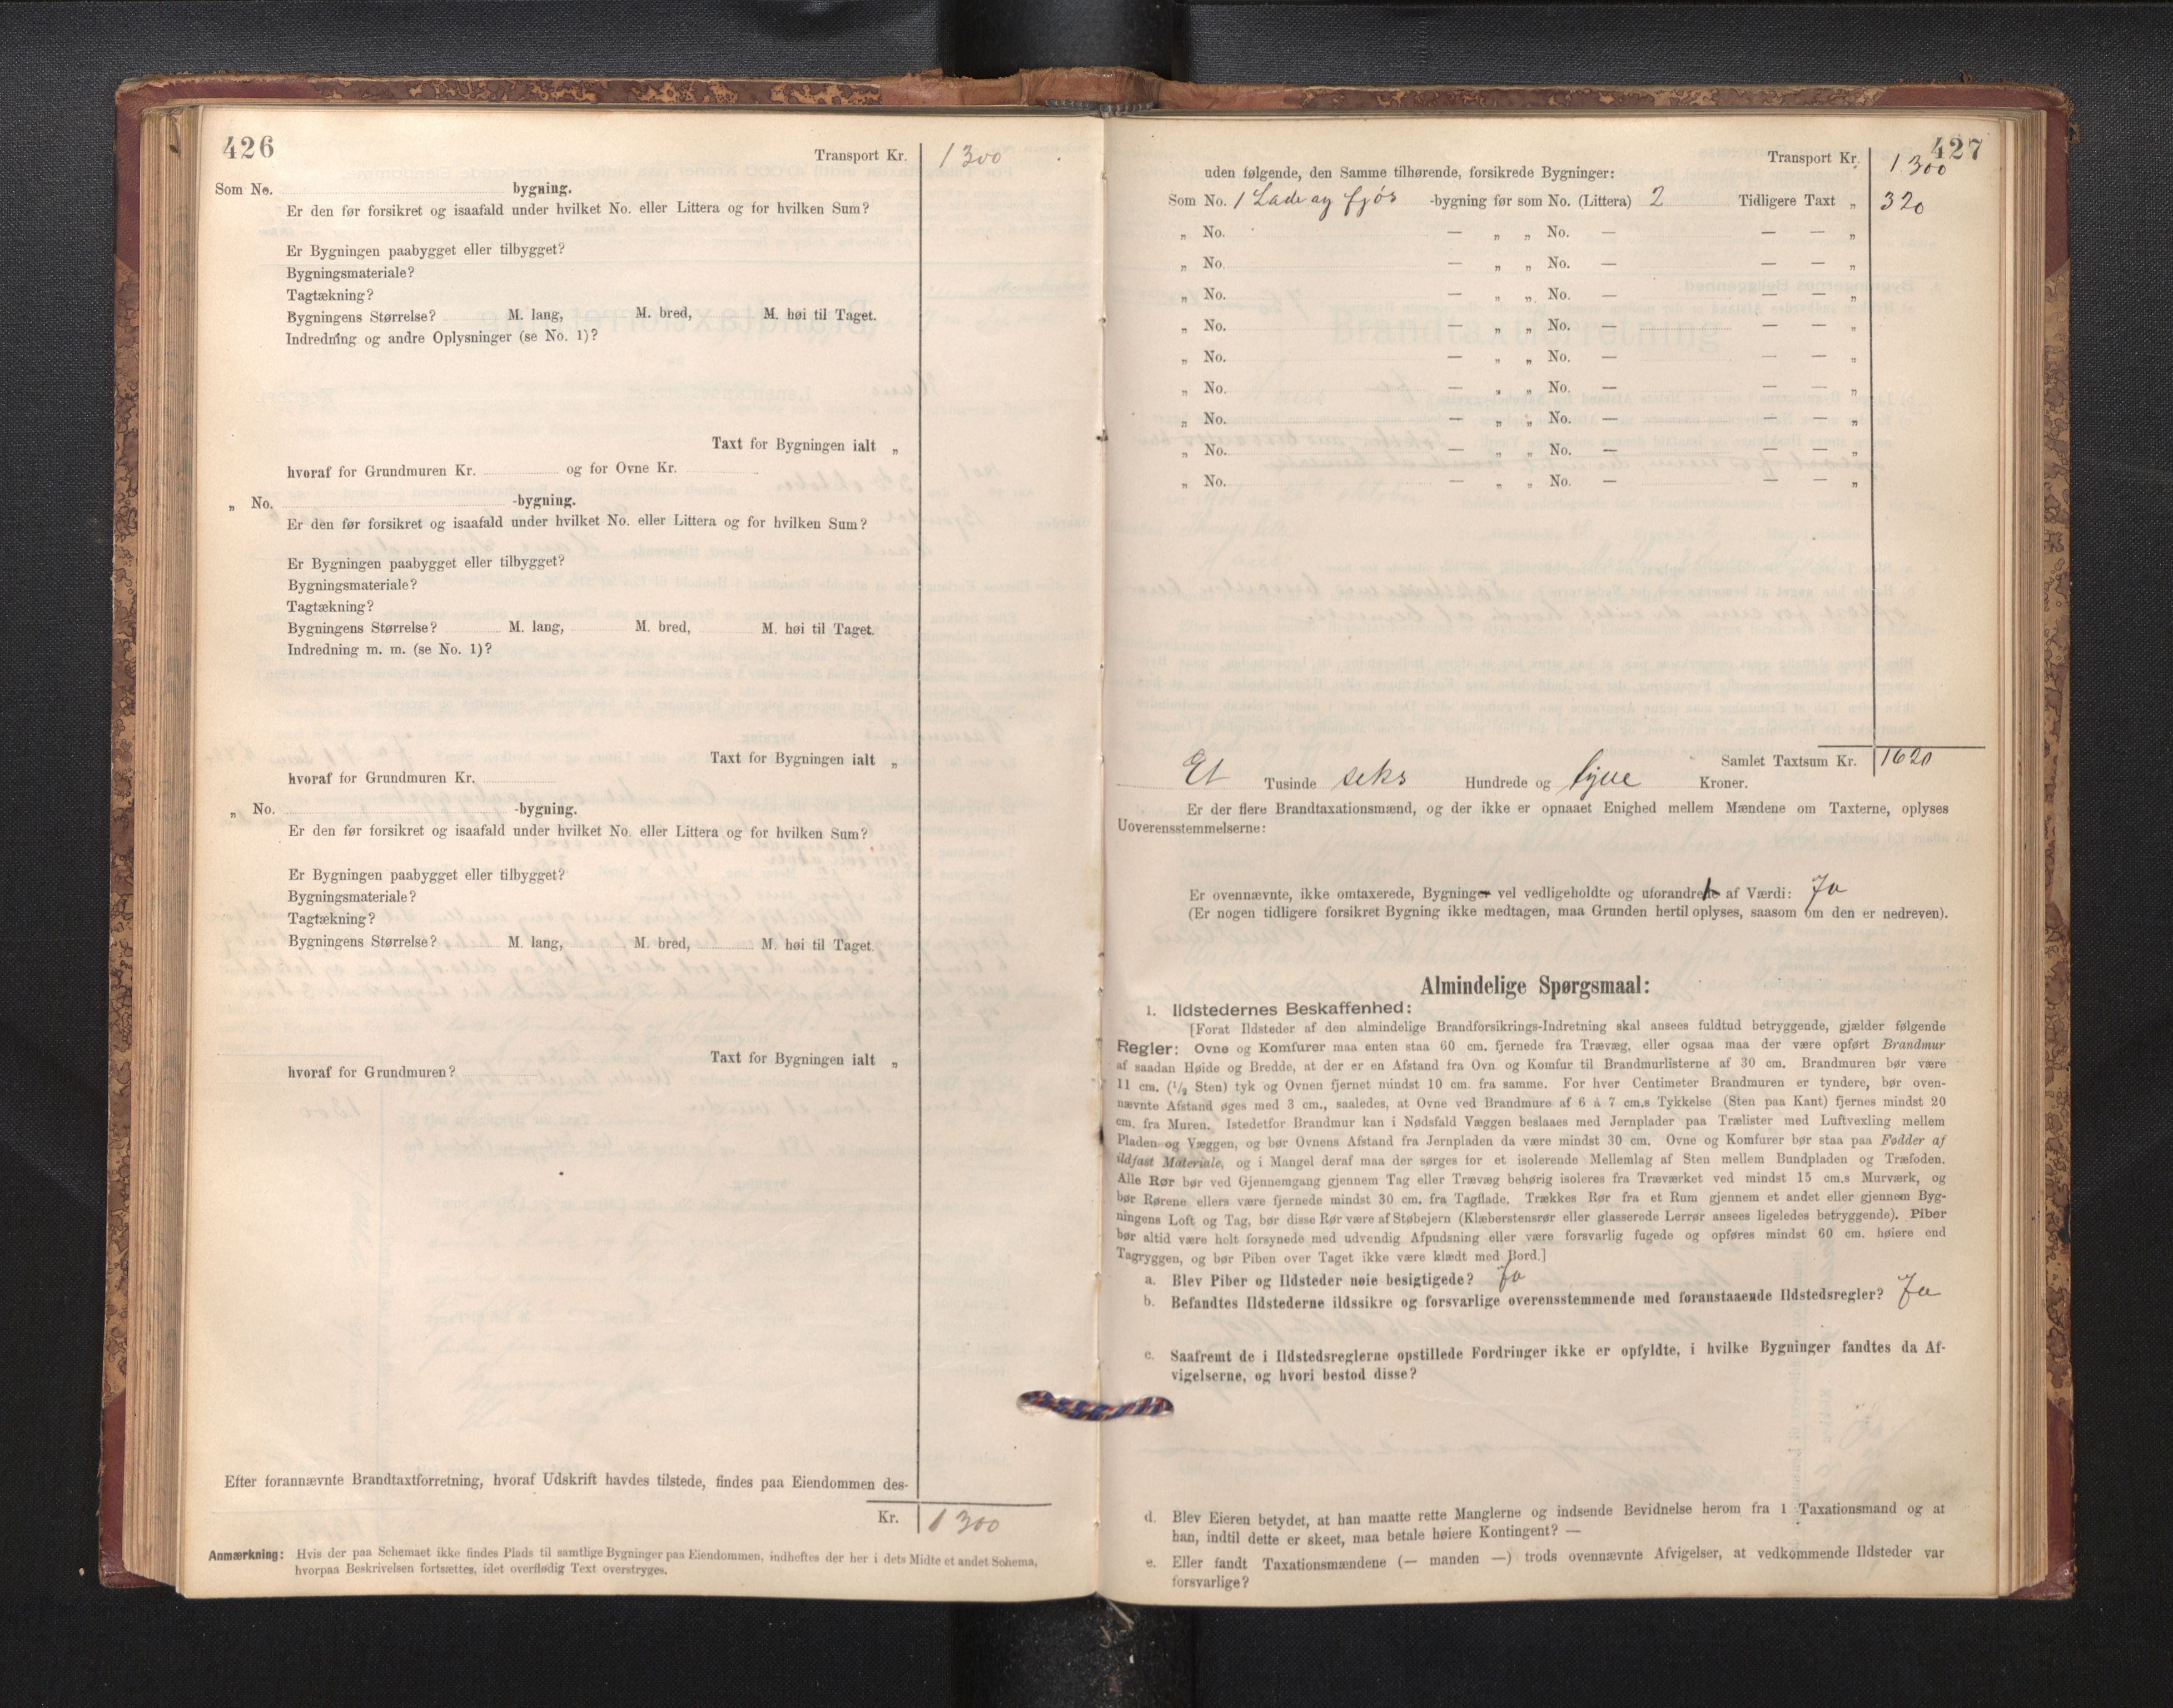 426
Transport Kr. 1300
Som No. bygning.
Er den før forsikret og isaafald under hvilket No. eller Littera og for hvilken Sum?
Er Bygningen paabygget eller tilbygget?
Bygningsmateriale?
Tagtækning?
Bygningens Størrelse? M. lang, M. bred, M. høi til Taget.
Indredning og andre Oplysninger (se No. 1)?
Taxt for Bygningen ialt „
hvoraf for Grundmuren Kr. og for Ovne Kr.
„ No. -bygning.
Er den før forsikret og isaafald under hvilket No. eller Littera og for hvilken Sum?
Er Bygningen paabygget eller tilbygget?
Bygningsmateriale?
Tagtækning?
Bygningens Størrelse? M. lang, M. bred, M. høi til Taget.
Indredning m. m. (se No. 1)?
Taxt for Bygningen ialt „
hvoraf for Grundmuren Kr.
„ No. -bygning.
Er den før forsikret og isaafald under hvilket No. eller Littera og for hvilken Sum?
Er Bygningen paabygget eller tilbygget?
Bygningsmateriale?
Tagtækning?
Bygningens Størrelse? M. lang, M. bred, M. høi til Taget.
Taxt for Bygningen ialt „
hvoraf for Grundmuren?
Efter forannævnte Brandtaxtforretning, hvoraf Udskrift havdes tilstede, findes paa Eiendommen des-
Kr. 1300
Anmærkning: Hvis der paa Schemaet ikke findes Plads til samtlige Bygninger paa Eiendommen, indheftes der her i dets Midte et andet Schema,
hvorpaa Beskrivelsen fortsættes, idet overflødig Text overstryges.
427
Transport Kr. 1300
uden følgende, den Samme tilhørende, forsikrede Bygninger:
Som No. 1 Lade og fjøs -bygning før som No. (Littera) 2 Tidligere Taxt „ 320
„ No. — „ „ No. — — — „
„ No. — „ „ No. — — — „
„ No. — „ „ No. — — — „
„ No. — „ „ No. — — — „
„ No. — „ „ No. — — — „
„ No. — „ „ No. — — — „
„ No. — „ „ No. — — — „
„ No. — „ „ No. — — — „
„ No. — „ „ No. — — — „
Samlet Taxtsum Kr. 1620
Et Tusinde seks Hundrede og tyve Kroner.
Er der flere Brandtaxationsmænd, og der ikke er opnaaet Enighed mellem Mændene om Taxterne, oplyses
Uoverensstemmelserne:
Er ovennævnte, ikke omtaxerede, Bygninger vel vedligeholdte og uforandrete af Værdi: Ja
(Er nogen tidligere forsikret Bygning ikke medtagen, maa Grunden hertil oplyses, saasom om den er nedreven).
Almindelige Spørgsmaal:
1. Ildstedernes Beskaffenhed:
[Forat Ildsteder af den almindelige Brandforsikrings-Indretning skal ansees fuldtud betryggende, gjælder følgende
Regler: Ovne og Komfurer maa enten staa 60 cm. fjernede fra Trævæg, eller ogsaa maa der være opført Brandmur
af saadan Høide og Bredde, at der er en Afstand fra Ovn og Komfur til Brandmurlisterne af 30 cm. Brandmuren bør være
11 cm. (1/2 Sten) tyk og Ovnen fjernet mindst 10 cm. fra samme. For hver Centimeter Brandmuren er tyndere, bør oven-
nævnte Afstand øges med 3 cm., saaledes, at Ovne ved Brandmure af 6 à 7 cm.s Tykkelse (Sten paa Kant) fjernes mindst 20
cm. fra Muren. Istedetfor Brandmur kan i Nødsfald Væggen beslaaes med Jernplader paa Trælister med Luftvexling mellem
Pladen og Væggen, og bør Ovnens Afstand fra Jernpladen da være mindst 30 cm. Ovne og Komfurer bør staa paa Fødder af
ildfast Materiale, og i Mangel deraf maa der sørges for et isolerende Mellemlag af Sten mellem Bundpladen og Træfoden.
Alle Rør bør ved Gjennemgang gjennem Tag eller Trævæg behørig isoleres fra Træværket ved mindst 15 cm.s Murværk, og
bør Rørene ellers være fjernede mindst 30 cm. fra Tagflade. Trækkes Rør fra et Rum gjennem et andet eller gjennem Byg-
ningens Loft og Tag, bør disse Rør være af Støbejern (Klæberstensrør eller glasserede Lerrør ansees ligeledes betryggende). Piber
bør altid være helt forsynede med udvendig Afpudsning eller være forsvarlig fugede og opføres mindst 60 cm. høiere end
Tagryggen, og bør Piben over Taget ikke være klædt med Bord.]
a. Blev Piber og Ildsteder nøie besigtigede? Ja
b. Befandtes Ildstederne ildssikre og forsvarlige overensstemmende med foranstaaende Ildstedsregler? Ja
c. Saafremt de i Ildstedsreglerne opstillede Fordringer ikke er opfyldte, i hvilke Bygninger fandtes da Af-
vigelserne, og hvori bestod disse?
d. Blev Eieren betydet, at han maatte rette Manglerne og indsende Bevidnelse herom fra 1 Taxationsmand og at
han, indtil dette er skeet, maa betale høiere Kontingent? —
e. Eller fandt Taxationsmændene (— manden —) trods ovennævnte Afvigelser, at vedkommende Ildsteder var
forsvarlige?